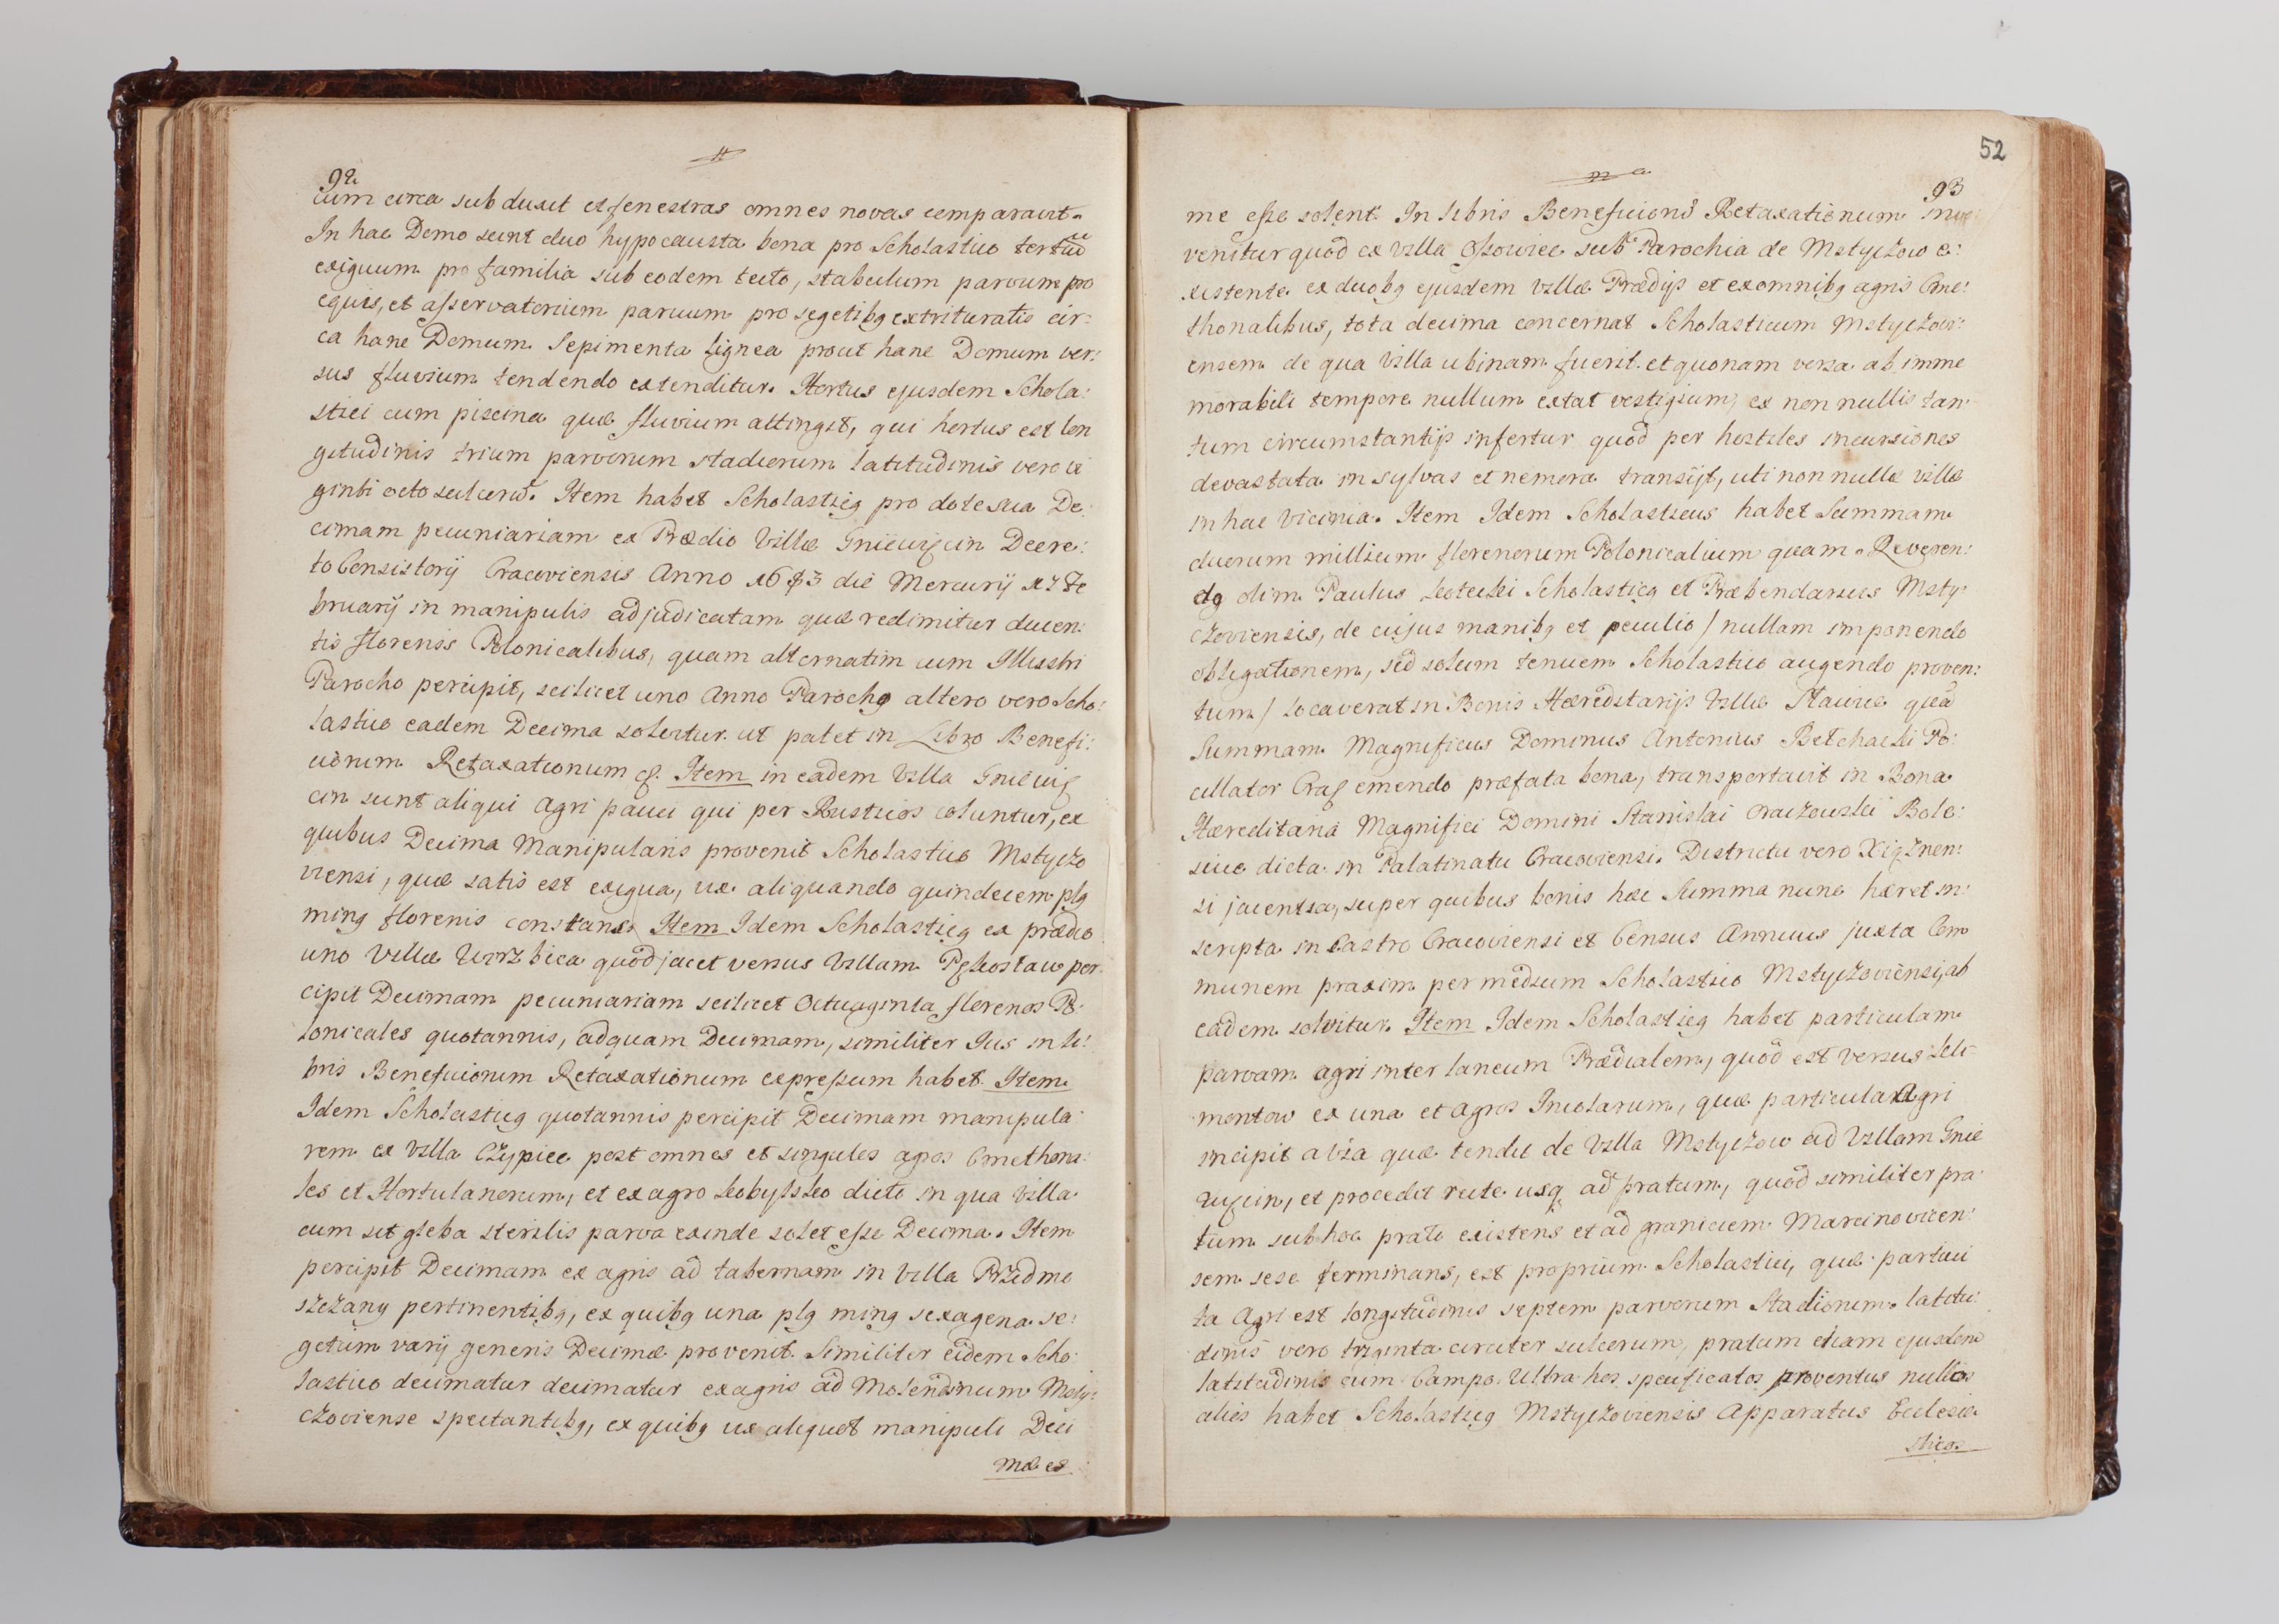 92
cum circa subduxit et fenestras omnes novas comparavit.
In hac Domo sunt duo hypocausta bona pro Scholastico tertiũ
exiguum pro familia sub eodem tecto, stabulum parvum pro
equis, et asservatorium parvum pro segetibꝫ extrituratis cir:
ca hanc Domum. Sepimenta lignea prout hanc Domum ver:
sus fluvium tendendo extenditur. Hortus ejusdem Schola:
stici cum piscina quæ fluvium attingit, qui hortus est lon
gitudinis trium parvorum stadiorum latitudinis vero vi
ginti octo sulcorũ. Item habet Scholasticꝫ pro dote sua De:
cimam pecuniariam ex Prædio Villæ Decre:
to Consistorij Cracoviensis Anno die Mercurij 17 Fe
bruarij in manipulis adjudicatam quæ redimitur ducen:
tis florenis Polonicalibus, quam alternatim cum Illustri
Parocho percipit, scilicet uno Anno Parochꝫ altero vero Scho:
lastico eadem Decima solvitur ut patet in Libro Benefi:
ciorum Retaxationum Item in eadem Villa
cin sunt aliqui Agri pauci qui per Rusticos coluntur, ex
quibus Decima Manipularis provenit Scholastico Mstyczo
viensi, quæ satis est exigua, vix aliquando quindecem plꝫ
minꝫ florenis constans Item Idem Scholasticꝫ ex prædio
uno Villæ Wirzbica quod jacet versus Villam per:
cipit Decimam pecuniariam scilicet Octuaginta florenos Po:
lonicales quotannis, ad quam Decimam, similiter Jus in Li:
bris Beneficiorum Retaxationum expressum habet. Item
Idem Scholasticꝫ quotannis percipit Decimam manipula:
rem ex Villa Czypiec post omnes et singulos agros Cmethona:
les et Hortulanorum, et ex agro dicto in qua Villa
cum sit gleba sterilis parva exinde solet esse Decima. Item
percipit Decimam ex agris ad tabernam in Villa Przedmo
szczany pertinentibꝫ, ex quibꝫ una plꝫ minꝫ sexagena se:
getum varij generis Decimæ provenit. Similiter eidem Scho:
lastico decimatur decimatur ex agris ad Molendinum Msty:
czoviense spectantibꝫ, ex quibꝫ vix aliquot manipuli Deci
mæ es
52
93
me esse solent. In Libris Beneficiorũ Retaxationum
venitur quod ex Villa Ossowiec sub Parochia de Mstyczow e:
xistente ex duobꝫ ejusdem Villæ Prædijs et ex omnibꝫ agris Cme:
thonalibus, tota decima concernat Scholasticum Mstyczovi:
ensem de qua Villa ubinam fuerit et quonam versa ab imme
morabili tempore nullum extat vestigium, ex non nullis tan:
tum circumstantijs infertur quod per hostiles incursiones
devastata in sylvas et nemora transijt, uti non nullæ villæ
in hac vicinia. Item Idem Scholasticus habet Summam
duorum millium florenorum Polonicalium quam Reveren:
dꝫ olim Paulus Scholasticꝫ et Præbendarius Msty:
czoviensis, de cujus manibꝫ et peculio / nullam imponendo
obligationem, sed solum tenuem Scholastico augendo proven:
tum / locaverat in Bonis Hæreditarijs Villæ quã
Summam Magnificus Dominus Antonius Po:
cillator emendo præfata bona, transportavit in Bona
Hæreditaria Magnifici Domini Stanislai Bole:
sice dicta in Palatinatu Cracoviensi Districtu vero Xiąznen:
si jacentia, super quibus bonis hæc Summa nunc hæret in:
scripta in Castro Cracoviensi et Census Annuus juxta Com
munem praxim per medium Scholastico Mstyczoviensi, ab
eadem solvitur. Item Idem Scholasticꝫ habet particulam
parvam agri inter laneum Prædialem, quod est versus
montow ex una et agros Incolarum, quæ particula Agri
incipit a via quæ tendit de Villa Mstyczow ad Villam Gnie
et procedit recte usq ad pratum, quod similiter pra:
tum sub hoc prato existens et ad graniciem Marcinovicen:
sem sese terminans, est proprium Scholastici, quæ particu
la Agri est longitudinis septem parvorum Stadiorum latitu:
dinis vero triginta circiter sulcorum, pratum etiam ejusdem
latitudinis cum Campo. Ultra hos specificatos proventus nullos
alios habet Scholasticꝫ Mstyczoviensis Apparatus Ecclesia
sticos